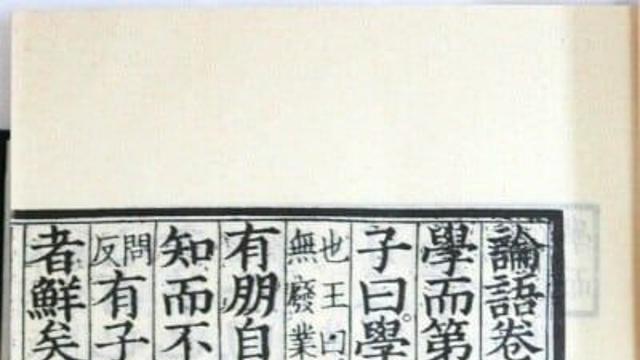 論語卷
學而第
子曰學
也王曰
無發業
有朋自
知而不
問
反
有子
者鮮矣